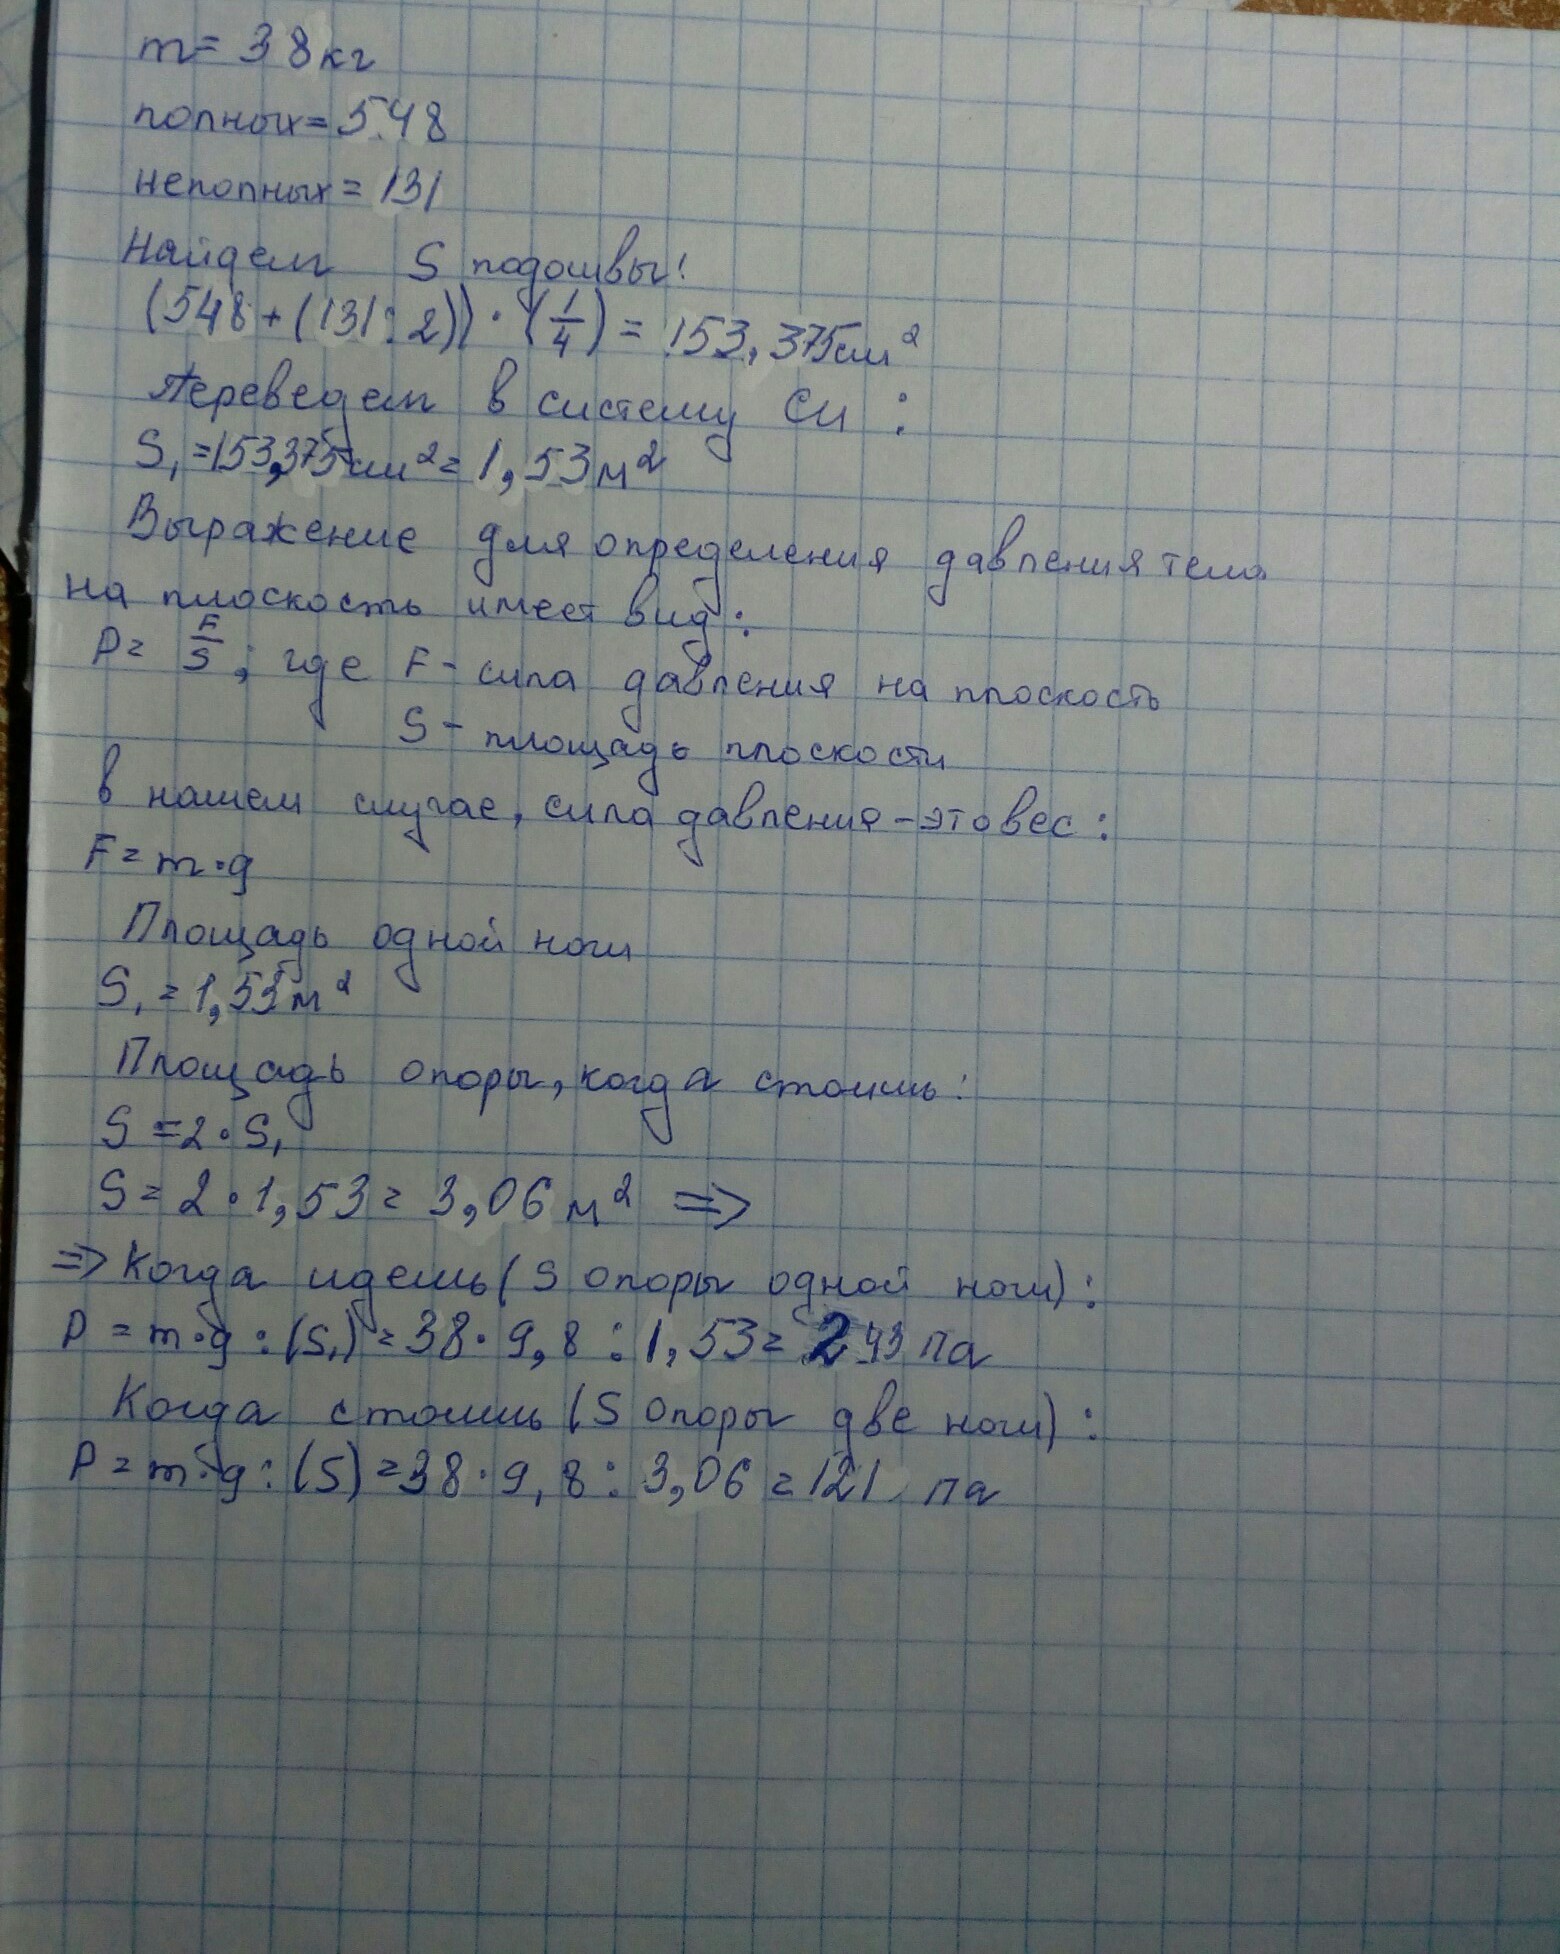 m= 38кг
полных=548
неполных = 131
Найдем S подошвы:
(548+(131:2))·(1/4)= 153,375см²
Переведем в систему СИ:
S₁=153,375см²=1,53м²
Выражение для определения давления тела
на плоскость имеет вид:
P= F/S; где F- сила давления на плоскость
S- площадь плоскости
в нашем случае, сила давления-это вес:
F=m·g
Площадь одной ноги
S₁=1,53м²
Площадь опоры, когда стоишь:
S=2·S₁
S=2·1,53=3,06м² =>
=> Когда идешь (S опоры одной ноги):
P=m·g:(S₁)=38·9,8:1,53=243 Па
Когда стоишь (S опоры две ноги):
P=m·g:(S)=38·9,8:3,06=121 Па